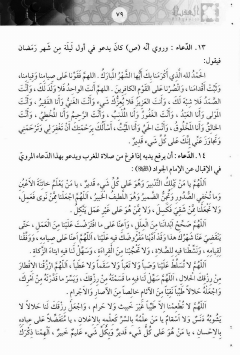 ٧٩
١٣. الدّعاء : وروي أنّه (ص) كان يدعو في أول ليلة من شهر رمضان
فيقول:
الحَمدُ لله الّذي أكرَمَنا بِكَ أيُّها الشّهرُ المُبارَك، اللّهُمّ فَقَوِّنا عَلى صِيامِنا وقِيامِنا،
وثَبِّت أقدامَنا، وانصُرنا عَلى القَومِ الكافِرين، اللّهُمّ أنتَ الواحِدُ فَلا وَلَدَ لَك، وأنتَ
الصّمَدُ فَلا شِبهَ لَك، وأنتَ العَزيزُ فَلا يُعِزُّكَ شَيء، وأنتَ الغَنيُّ وأنا الفَقير، وأنتَ
المَولى وأنا العَبد، وأنتَ الغَفورُ وأنا المُذنِب، وأنتَ الرّحيمُ وأنا المُخطِئ، وأنتَ
الخالِقُ وأنا المَخلوق، وأنتَ الحَيُّ وأنا المَيّت، أسألُكَ بِرَحمَتِكَ أن تَغفِرَ لي وتَرحَمَني
وتَجاوَزَ عَنّي إنّكَ عَلى كُلِّ شَيءٍ قَدير.
١٤. الدّعاء : أن يرفع يديه إذا فرغ من صلاة المغرب ويدعو بهذا الدعاء المرويّ
في الإقبال عن الإمام الجواد
اللّهُمّ يا مَن يَملِكُ التّدبيرَ وَهُوَ عَلى كُلِّ شَيءٍ قَدير، يا مَن يَعلَمُ خائِنَةَ الأعيُنِ
وما تُخفي الصُّدور وتُجِنُّ الضّميرُ وَهُوَ اللّطيفُ الخَبير، اللّهُمّ اجعَلنا مِمّن نَوى فَعَمِل،
ولا تَجعَلنا مِمّن شَقِيَ فَكَسِل، ولا مِمّن هُوَ عَلى غَيرِ عَمَلٍ يَتّكِل.
اللّهُمّ صَحِّح أبدانَنا مِنَ العِلَل، وأعِنّا عَلى ما افتَرَضتَ عَلَينا مِنَ العَمَل، حَتّى
يَنقَضِيَ عَنّا شَهرُكَ هذا وقَد أدّينا مَفروضَكَ فيهِ عَلَينا، اللّهُمّ أعِنّا عَلى صِيامِه، ووَفِّقنا
لِقِيامِه، ونَشِّطنا فيهِ لِلصّلاة، ولا تَحجُبنا مِنَ القِراءة، وسَهِّل لَنا فيهِ إيتاءَ الزّكاة.
اللّهُمّ لا تُسَلِّط عَلَينا وَصَباً ولا تَعَباً ولا سَقَماً ولا عَطَباً، اللّهُمّ ارزُقنا الإفطارَ
مِن رِزقِكَ الحَلال، اللّهُمّ سَهِّل لَنا فيهِ ما قَسَمتَهُ مِن رِزقِك، ويَسِّر ما قَدّرتَهُ مِن أمرِك،
واجعَلهُ حَلالاً طَيِّباً نَقِيّاً مِنَ الآثام خالِصاً مِنَ الآصارِ والأجرام.
اللّهُمّ لا تُطعِمنا إلّا طَيِّباً غَيرَ خَبيثٍ ولا حَرام، واجعَل رِزقَكَ لَنا حَلالاً لا
يَشوبُهُ دَنَسٌ ولا أسقام، يا مَن عِلمُهُ بِالسِّرِّ كَعِلمِهِ بِالإعلان، يا مُتَفَضِّلاً عَلى عِبادِهِ
بِالإحسان، يا مَن هُوَ عَلى كُلِّ شَيءٍ قَدير وبِكُلِّ شَيءٍ عَليمٌ خَبير، ألهِمنا ذِكرَكَ